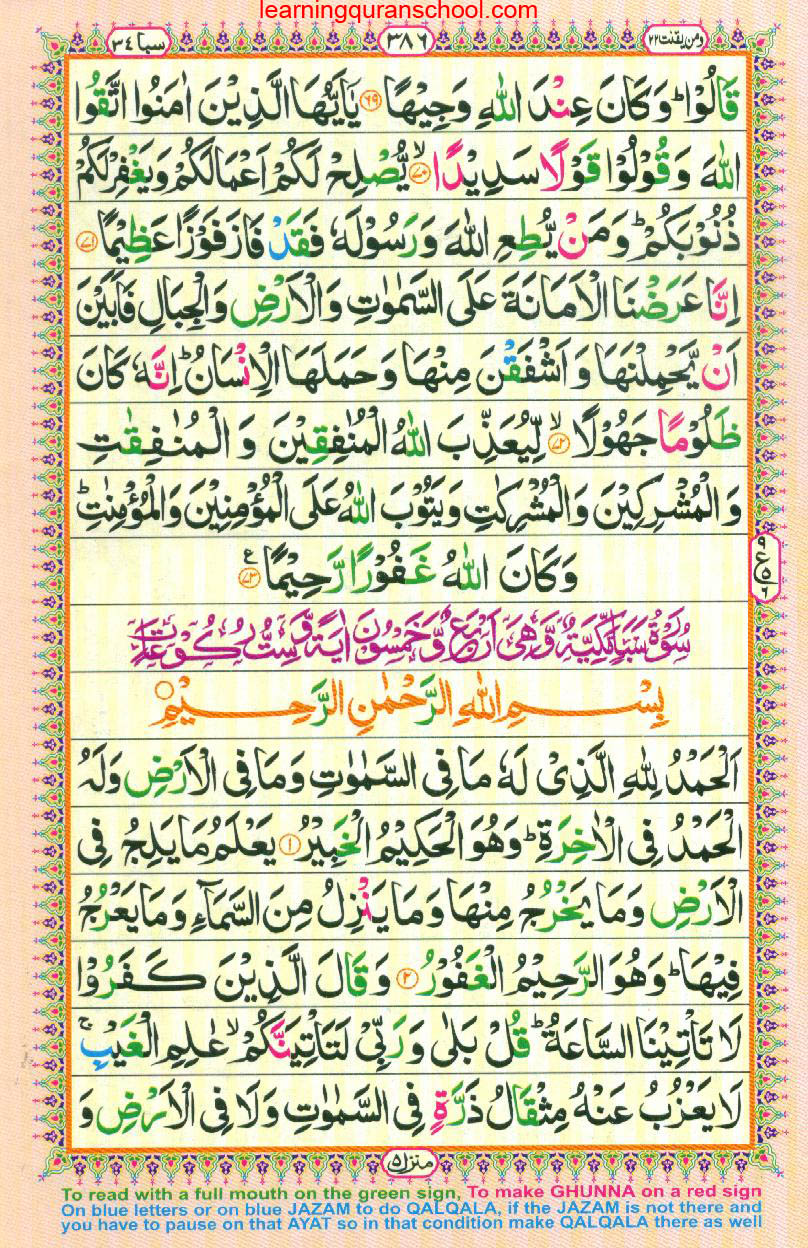 learningquranschool.com
ومن يقنت ٢٢
٣٨٦
سبا ٣٤
قَالُوْا ؕ وَكَانَ عِنْدَ اللّٰهِ وَجِيْهًا ﴿۶۹﴾ يٰۤاَيُّهَا الَّذِيْنَ اٰمَنُوا اتَّقُوا
اللّٰهَ وَقُوْلُوْا قَوْلًا سَدِيْدًا ﴿۷۰﴾ ۙ يُّصْلِحْ لَكُمْ اَعْمَالَكُمْ وَيَغْفِرْ لَكُمْ
ذُنُوْبَكُمْ ؕ وَمَنْ يُّطِعِ اللّٰهَ وَرَسُوْلَهٗ فَقَدْ فَازَ فَوْزًا عَظِيْمًا ﴿۷۱﴾
اِنَّا عَرَضْنَا الْاَمَانَةَ عَلَى السَّمٰوٰتِ وَالْاَرْضِ وَالْجِبَالِ فَاَبَيْنَ
اَنْ يَّحْمِلْنَهَا وَاَشْفَقْنَ مِنْهَا وَحَمَلَهَا الْاِنْسَانُ ؕ اِنَّهٗ كَانَ
ظَلُوْمًا جَهُوْلًا ﴿۷۲﴾ ۙ لِّيُعَذِّبَ اللّٰهُ الْمُنٰفِقِيْنَ وَالْمُنٰفِقٰتِ
وَالْمُشْرِكِيْنَ وَالْمُشْرِكٰتِ وَيَتُوْبَ اللّٰهُ عَلَى الْمُؤْمِنِيْنَ وَالْمُؤْمِنٰتِ ؕ
وَكَانَ اللّٰهُ غَفُوْرًا رَّحِيْمًا ﴿۷۳﴾ ع
٩
ع
۵
٦
سُوْرَةُ سَبَاٍ مَّكِّيَّةٌ وَّهِىَ اَرْبَعٌ وَّخَمْسُوْنَ اٰيَةً وَّسِتُّ رُكُوْعَاتٍ
بِسْمِ اللّٰهِ الرَّحْمٰنِ الرَّحِيْمِ
اَلْحَمْدُ لِلّٰهِ الَّذِىْ لَهٗ مَا فِى السَّمٰوٰتِ وَمَا فِى الْاَرْضِ وَلَهُ
الْحَمْدُ فِى الْاٰخِرَةِ ؕ وَهُوَ الْحَكِيْمُ الْخَبِيْرُ ﴿۱﴾ يَعْلَمُ مَا يَلِجُ فِى
الْاَرْضِ وَمَا يَخْرُجُ مِنْهَا وَمَا يَنْزِلُ مِنَ السَّمَآءِ وَمَا يَعْرُجُ
فِيْهَا ؕ وَهُوَ الرَّحِيْمُ الْغَفُوْرُ ﴿۲﴾ وَقَالَ الَّذِيْنَ كَفَرُوْا
لَا تَاْتِيْنَا السَّاعَةُ ؕ قُلْ بَلٰى وَرَبِّىْ لَتَاْتِيَنَّكُمْ ۙ عٰلِمِ الْغَيْبِ ۚ
لَا يَعْزُبُ عَنْهُ مِثْقَالُ ذَرَّةٍ فِى السَّمٰوٰتِ وَلَا فِى الْاَرْضِ وَ
منزل ۵
To read with a full mouth on the green sign, To make GHUNNA on a red sign
On blue letters or on blue JAZAM to do QALQALA, if the JAZAM is not there and
you have to pause on that AYAT so in that condition make QALQALA there as well